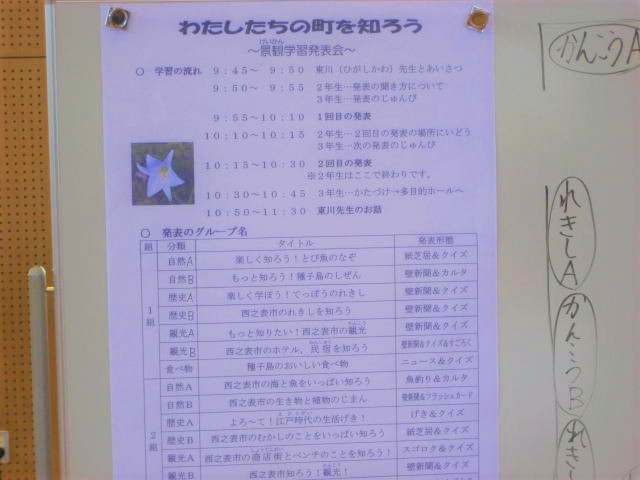 わたしたちの町を知ろう
～景観学習発表会～
けいかん
○ 学習の流れ 9：45～ 9：50 東川（ひがしかわ）先生とあいさつ
9：50～ 9：55 2年生…発表の聞き方について
3年生…発表のじゅんび
9：55～10：10 1回目の発表
10：10～10：15 2年生…2回目の発表の場所にいどう
3年生…次の発表のじゅんび
10：15～10：30 2回目の発表
※2年生はここで終わりです。
10：30～10：45 3年生…かたづけ→多目的ホールへ
10：50～11：30 東川先生のお話
○ 発表のグループ名
組 分類 タイトル 発表形態
1組
自然A 楽しく知ろう！とび魚のなぞ 紙芝居＆クイズ
自然B もっと知ろう！種子島のしぜん 壁新聞＆カルタ
歴史A 楽しく学ぼう！てっぽうのれきし 壁新聞＆クイズ
歴史B 西之表市のれきしを知ろう 壁新聞＆クイズ
観光A もっと知りたい！西之表市の観光 壁新聞＆クイズ
かんこう
観光B 西之表市のホテル，民宿を知ろう 壁新聞&クイズ&すごろく
みんしゅく
食べ物 種子島のおいしい食べ物 ニュース＆クイズ
2組
自然A 西之表市の海と魚をいっぱい知ろう 魚釣り＆カルタ
自然B 西之表市の生き物と植物のじまん 壁新聞&フラッシュカード
歴史A よろ～て！江戸時代の生活げき！ げき＆クイズ
えどじだい
歴史B 西之表市のむかしのことをいっぱい知ろう 紙芝居＆クイズ
観光A 西之表市の商店街とベンチのことを知ろう！ スゴロク＆クイズ
しょうてんがい
観光B 西之表市知ろう！観光！ 壁新聞＆クイズ
かんこう
かんこうA
れきしA
かんこうB
れきし